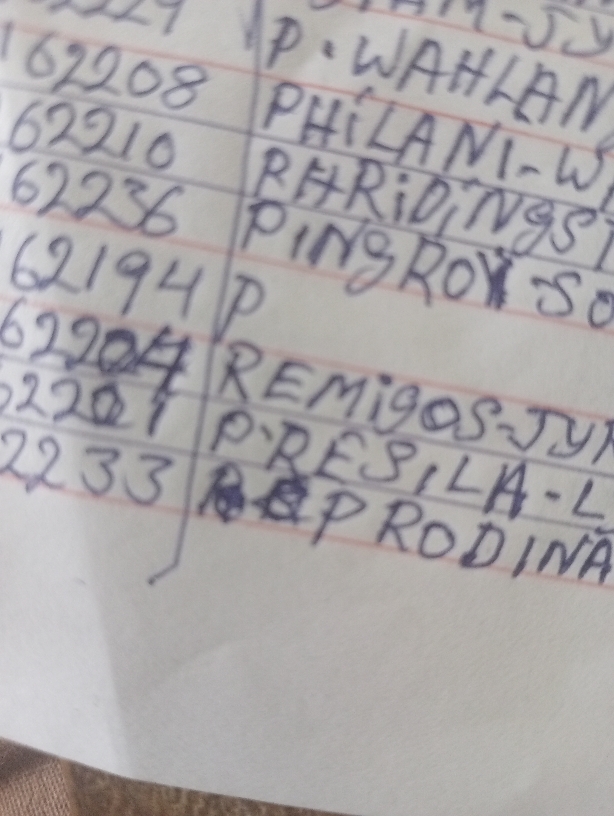 62229 AM-JY
162208 P. WAHLAN
62210 PHiLANI-W
62236 RHRiDiNgST
162194 PiNgROY-SO
62204 P
62201 REMigOS-JYR
2233 P. RESiLA-L
PRODINA